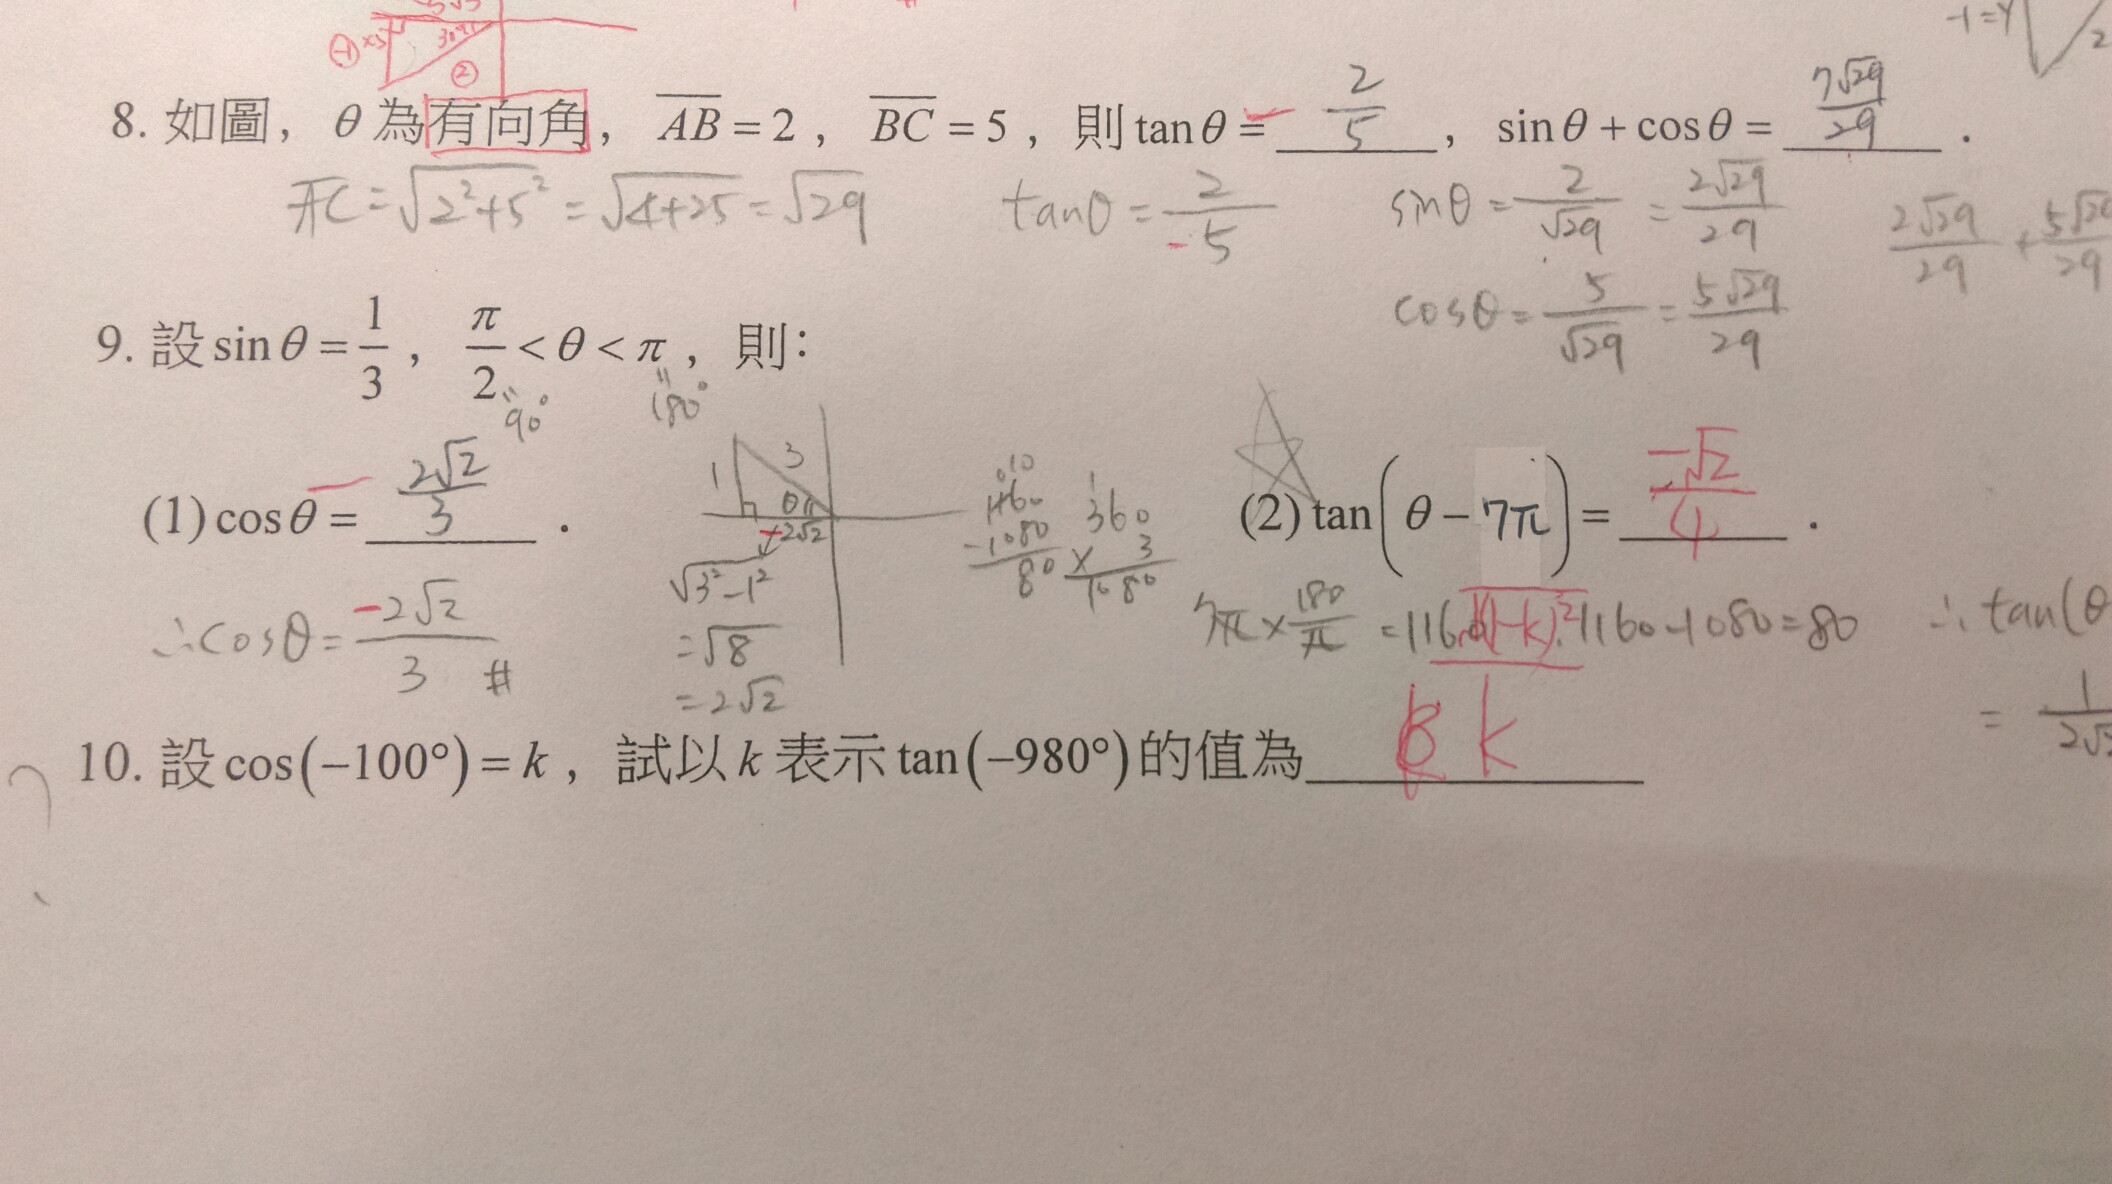 -1=Y
2
① ×5 30° ②
8. 如圖，θ為有向角，AB=2，BC=5，則tanθ= - 2/5，sinθ+cosθ= 7√29/29．
AC=√2²+5²=√4+25=√29 tanθ=2/-5 sinθ=2/√29=2√29/29 2√29/29+5√29/29
cosθ=5/√29=5√29/29
9. 設sinθ=1/3，π/2<θ<π，則：
=90° =180°
(1)cosθ= - 2√2/3．
1 3 θ -2√2
√3²-1²
=√8
=2√2
∴cosθ=-2√2/3 #
1160-1080 80
360×3 1080
(2)tan(θ-7π)= -√2/4．
7π×180/π=1160 1160-1080=80 ∴tan(θ
=1/2√2
10. 設cos(-100°)=k，試以k表示tan(-980°)的值為 k